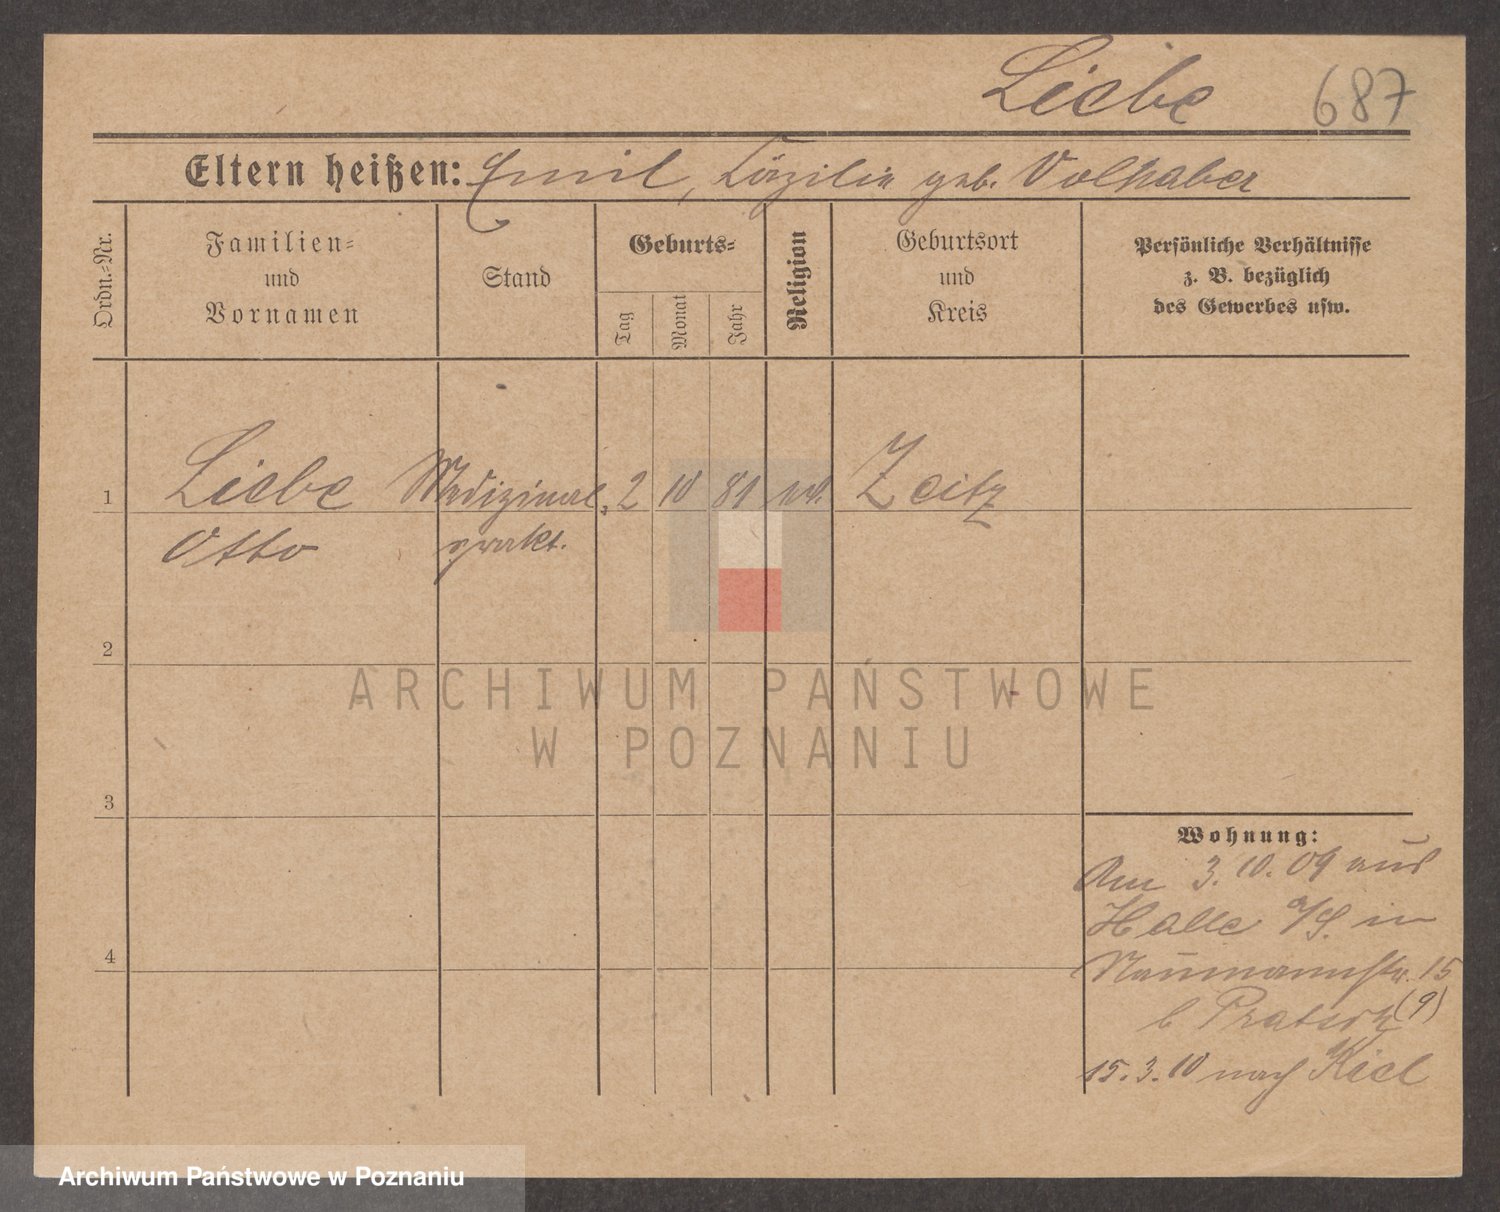 Liebe 687
Eltern heißen: Emil, Cäzilie geb. Volkaber
Ordn.-Nr.
Familien-
und
Vornamen
Stand
Geburts-
Tag
Monat
Jahr
Religion
Geburtsort
und
Kreis
Persönliche Verhältnisse
z. B. bezüglich
des Gewerbes usw.
1 Liebe Medizinal. 2 10 81 ev. Zeitz
Otto prakt.
2
ARCHIWUM PAŃSTWOWE
W POZNANIU
3
Wohnung:
Am 3.10.09 aus
Halle a/S. in
4 Naumannstr. 15
b (9)
15.3.10 nach Kiel
Archiwum Państwowe w Poznaniu